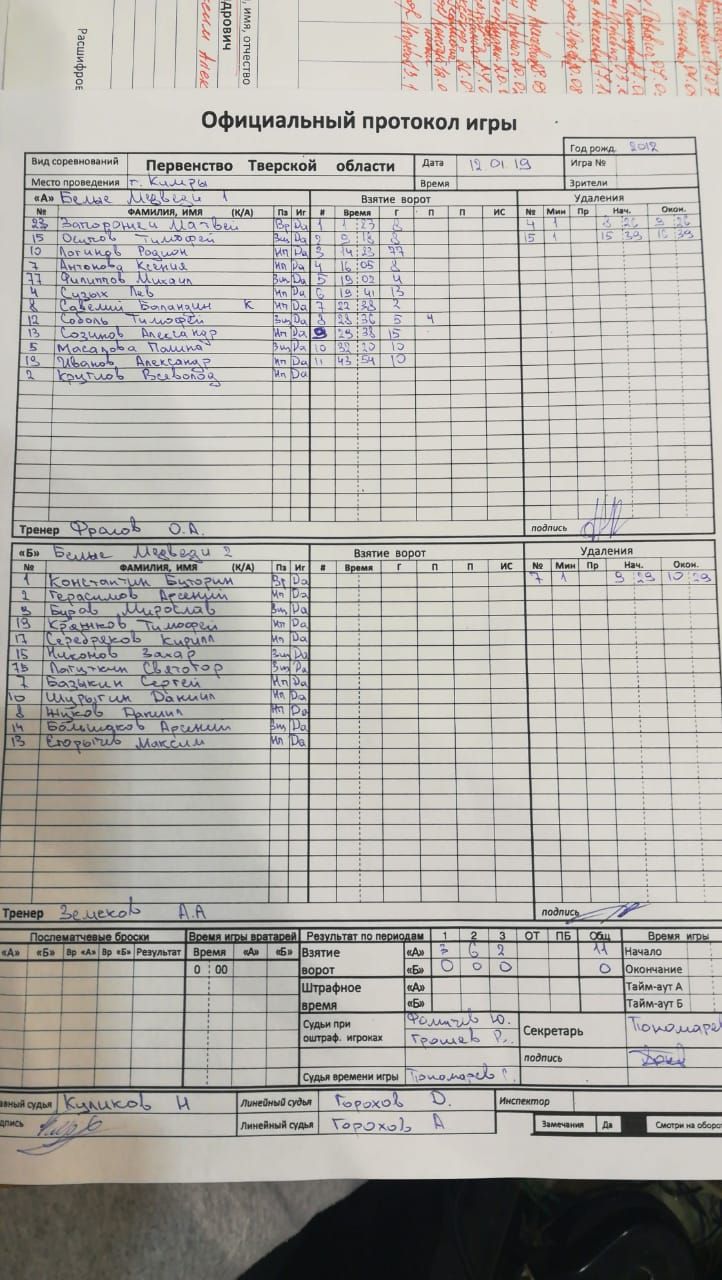 имя, отчество
дрович
Расшифров
Официальный протокол игры
Год рожд. 2012
Вид соревнований Первенство Тверской области Дата 12 01 19 Игра №
Место проведения г. Кимры Время Зрители
«А» Белые Медведи 1 Взятие ворот Удаления
№ ФАМИЛИЯ, ИМЯ (К/А) Пз Иг # Время Г П П ИС № Мин Пр Нач. Окон.
23 Запорожец Матвей Вр Да 1 1 23 8 4 1 8 26 9 26
15 Осипов Тимофей Зщ Да 2 9 18 8 15 1 15 39 16 39
10 Логинов Родион Нп Да 3 14 23 77
7 Антонова Ксения Нп Да 4 16 05 8
77 Филиппов Михаил Зщ Да 5 19 02 4
4 Сизых Лев Нп Да 6 19 41 13
8 Савелий Баландин К Нп Да 7 22 28 2
12 Соболь Тимофей Зщ Да 8 28 36 5 4
13 Созинов Александр Нп Да 9 29 38 15
5 Масалова Полина Зщ Да 10 32 20 10
19 Иванов Александр Нп Да 11 43 54 10
2 Круглов Всеволод Нп Да
Тренер Фролов О.А. подпись
«Б» Белые Медведи 2 Взятие ворот Удаления
№ ФАМИЛИЯ, ИМЯ (К/А) Пз Иг # Время Г П П ИС № Мин Пр Нач. Окон.
1 Константин Буторин Вр Да 7 1 9 29 10 29
2 Герасимов Арсений Нп Да
3 Буров Мирослав Зщ Да
19 Кряжков Тимофей Нп Да
17 Серебряков Кирилл Нп Да
15 Никонов Захар Зщ Да
75 Лагуткин Святогор Зщ Да
7 Базыкин Сергей Нп Да
10 Шурыгин Даниил Нп Да
8 Жуков Даниил Нп Да
14 Большаков Арсений Зщ Да
13 Егорычев Максим Нп Да
Тренер Земсков А.А подпись
Послематчевые броски Время игры вратарей Результат по периодам 1 2 3 ОТ ПБ Общ Время игры
«А» «Б» Вр «А» Вр «Б» Результат Время «А» «Б» Взятие «А» 3 6 2 11 Начало
0 00 ворот «Б» 0 0 0 0 Окончание
Штрафное «А» Тайм-аут А
время «Б» Тайм-аут Б
Судьи при Фомичев Ю. Секретарь Пономарев
оштраф. игроках Грошев Р.
подпись
Судья времени игры Пономарев
авный судья Куликов Н Линейный судья Горохов D. Инспектор
дпись Линейный судья Горохов А Замечания Да Смотри на оборот